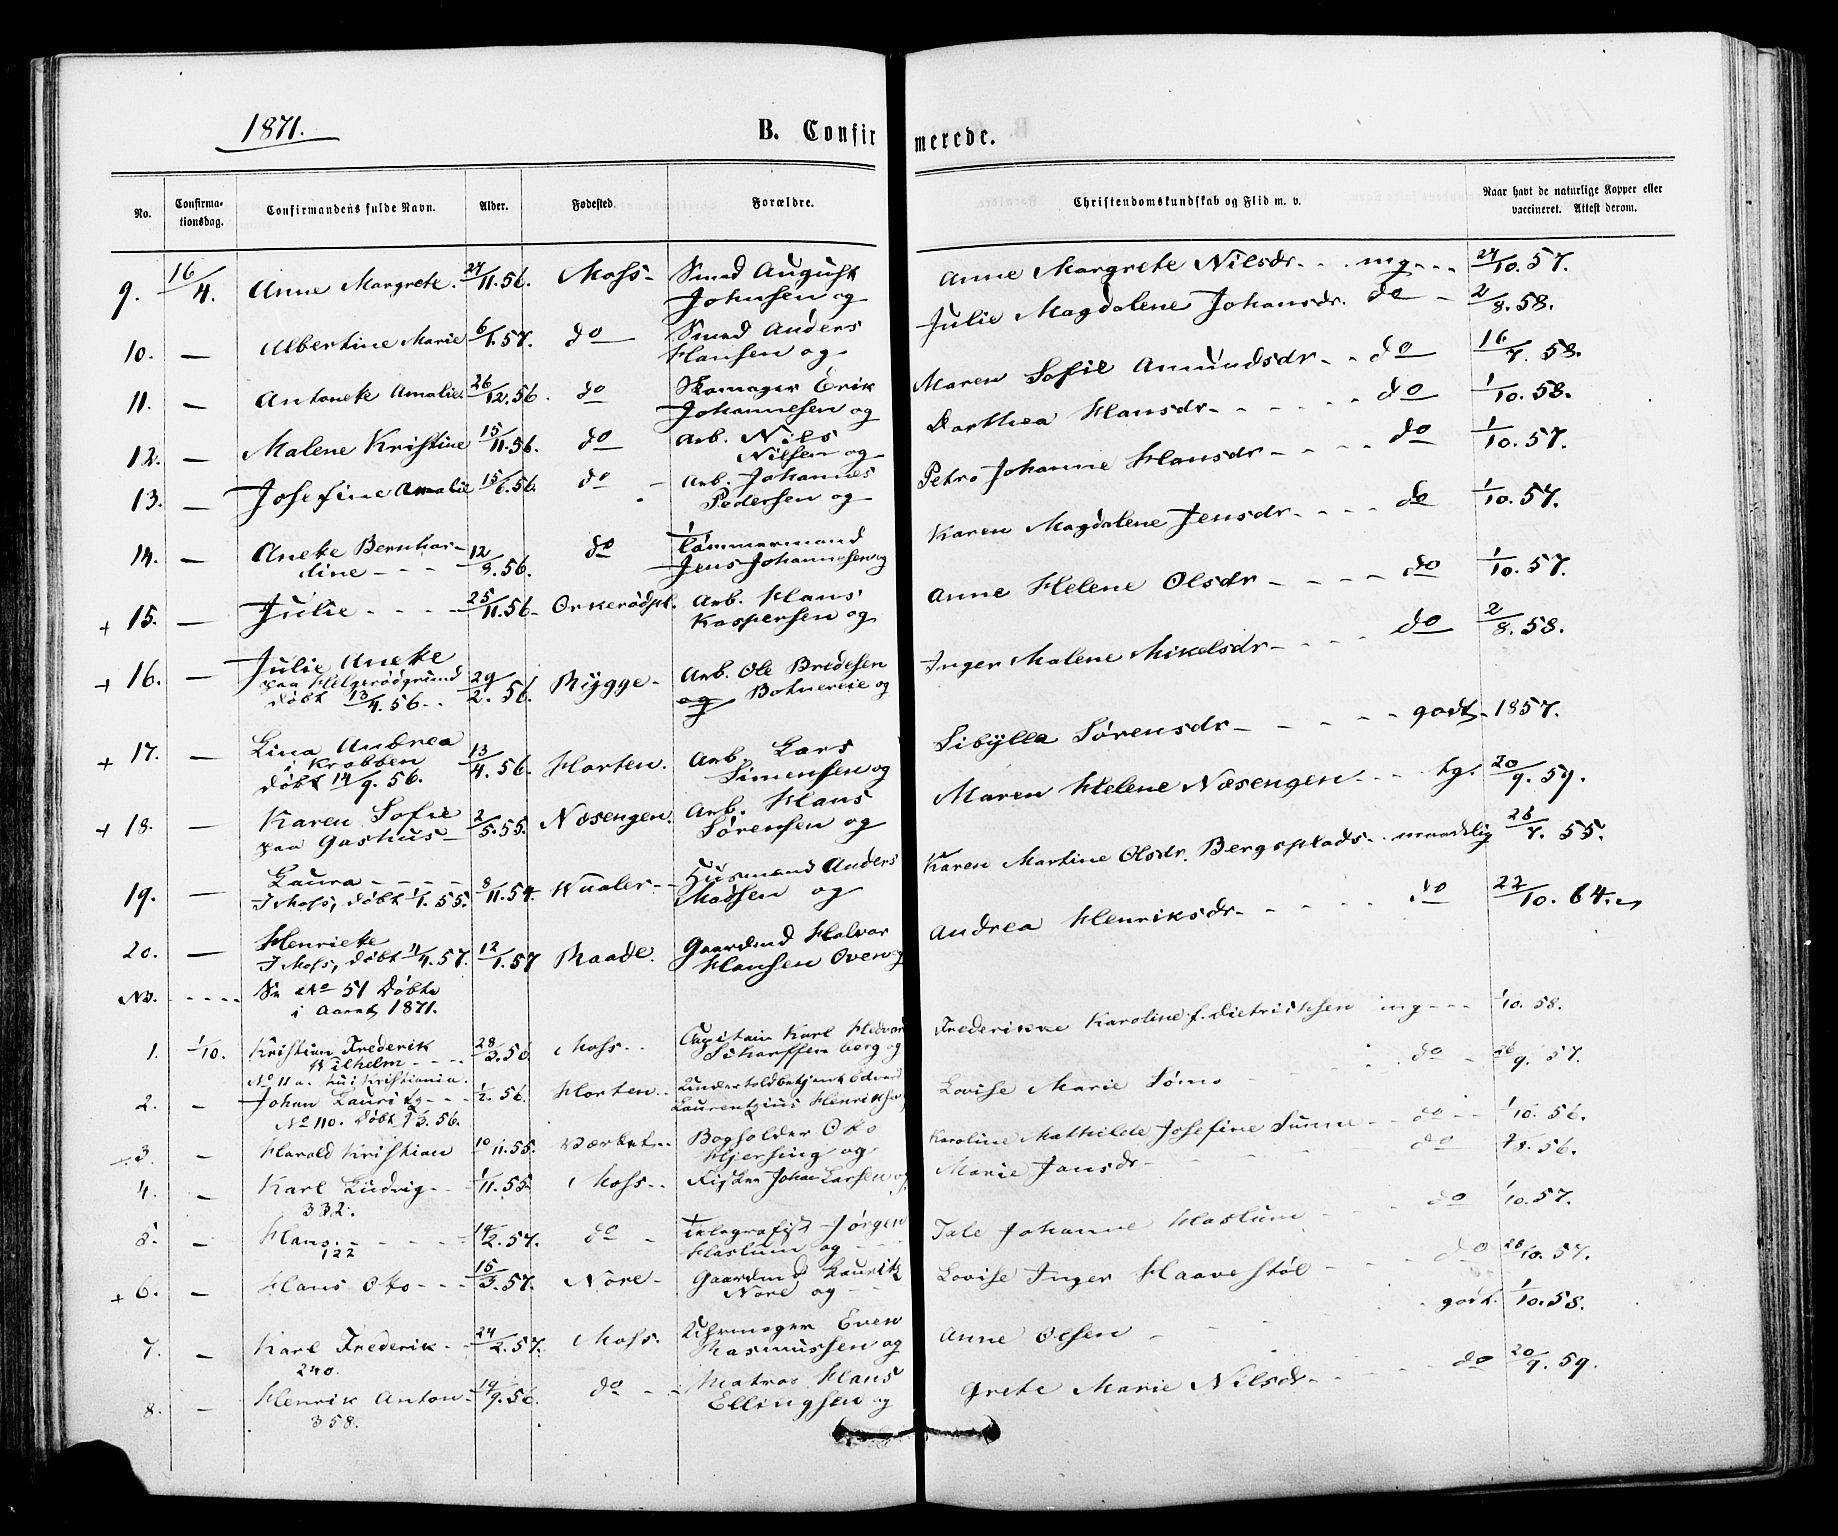 1871.
B. Confirmerede.
No. Confirma-tionsdag. Confirmandens fulde Navn. Alder. Fødested. Forældre. Christendomskundskab og Flid m. v. Naar havt de naturlige Kopper eller vaccineret. Attest derom.
9. 16/4. Anne Margrete. 27/11.56. Moss- Smed August Anne Margrete Nilsdr - - . mg - - . 27/10.57.
Johnsen og Julie Magdalene Johansdr. do - 2/8.58.
10. — Albertine Marie 6/1.57. do Smed Anders
Hansen og Maren Sofie Amundsdr - - do 16/7.58.
11. — Antonete Amalie. 26/12.56. do Skomager Erik
Johannesen og Dorthea Hansdr - - - - - do 1/10.58.
12. — Malene Kristine 15/11.56. do Arb. Nils
Nilsen og Petra Johanne Hansdr - - - - do 1/10.57.
13. — Josefine Amalie 15/6.56. do - Arb. Johannes
Pedersen og Karen Magdalene Jensdr - - - - do 1/10.57.
14. — Anete Bernhar-
dine - - - 12/9.56. do Tømmermand
Jens Johannesen og Anne Helene Olsdr - - - - do 1/10.57.
+ 15. — Julie - - - - 25/11.56. Orkerødpl. Arb. Hans
Kaspersen og Inger Malene Mikelsdr - - - do 2/8.58.
+ 16. — Julie Anete
paa Helgerødgrund
døbt 13/4.56. - 29/2.56. Rygge- Arb. Ole Bredesen
og Botnereie og Sibylla Sørensdr - - - - godt - 1857.
+ 17. — Lina Andrea
i Krabben
døbt 14/9.56. 13/4.56. Horten. Arb. Lars
Simensen og Maren Helene Næsengen - - . tg. 20/9.59.
+ 18. — Karen Sofie
paa Gashus - 2/5.55. Næsengen. Arb. Hans
Sørensen og Karen Martine Olsdr. Bergsplads - maadelig 28/7.55.
19. — Laura - - - -
I Moss, døbt 1/1.55. 8/11.54. Vaaler - - Husmand Anders
Madsen og Andrea Henriksdr - - - - - do 22/10.64.
20. — Henriete
I Moss, døbt 11/4.57. 12/1.57 Raade. Gaardmd Halvor
Hansen Oven og
Nb. - - - - Se No 51 Døbte
i Aaret 1871.
1. 1/10. Kristian Frederik
Vilhelm - - - 28/3.56 Moss - . Capitain Karl Hedvard
Scharffenberg og Frederikke Karoline f. Dietrichsen mg - - - 1/10.58.
No 11 a. Hui Kristiania.
2. - Johan Laurits - - - 1/2.56. Horten - . Undertoldbetjent Edvard
Laurentzius Henriksen Lovise Marie Sømo - - - do - 26/9.57.
No 110. Døbt 9/3.56.
3. - Harald Kristian 10/11.55. Værket - . Bogholder Oto
Hjersing og Karoline Mathilde Josefine Sunne - - do - - 1/10.56.
4. - Karl Ludvig - - 1/11.55. Moss - . Fisker Johan Larsen og Marie Jansdr - - - do 7/8.56.
332.
5. - Hans. - - - - 19/2.57. do - Telegrafist Jørgen
122 Haslum og Tale Johanne Haslum - - - do 1/10.57.
+ 6. - Hans Oto - - - 15/3.57. Nore - Gaardmd Laurik
Nore og - - Lovise Inger Haavestøl - - - do 28/10.57.
7. - Karl Frederik - - 24/2.57. Moss. Uhrmager Even
240. Rasmussen og Anne Olsen - - - godt. 1/10.58.
8. - Henrik Anton - 19/9.56. do - - Matros Hans
358. Ellingsen og Grete Marie Nilsdr - - - do 20/9.59.